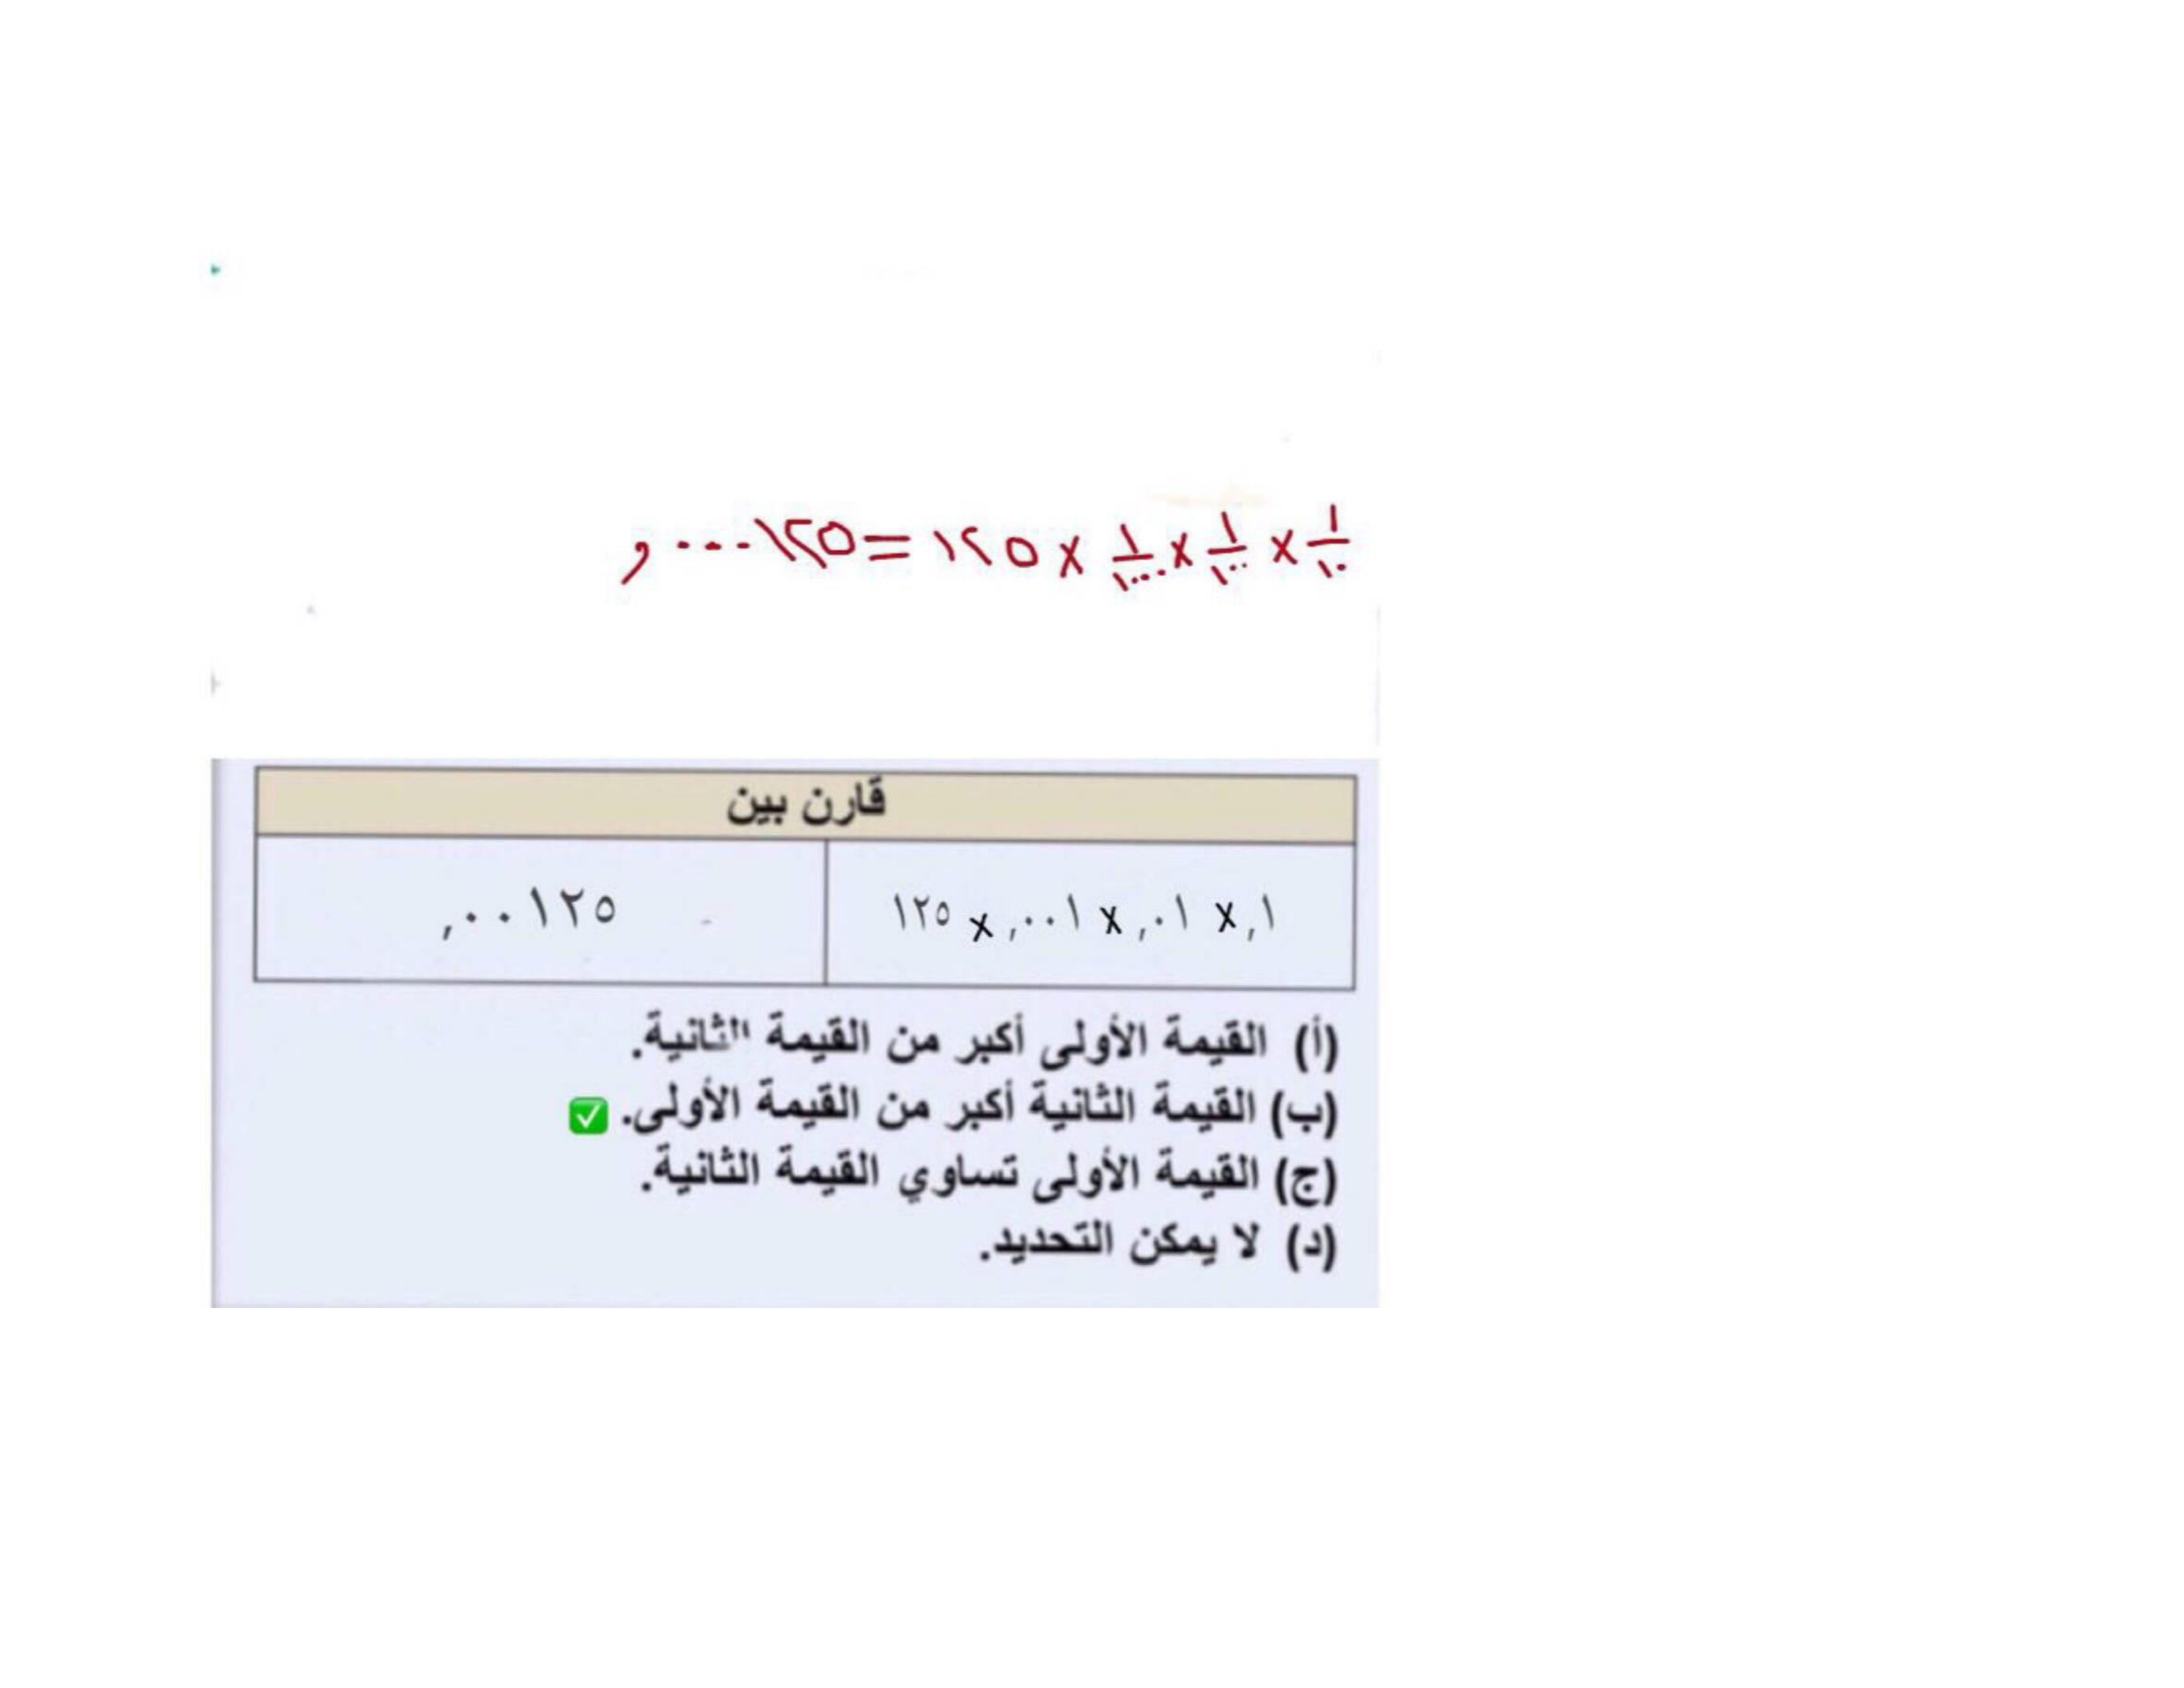 ١/١٠ × ١/١٠٠ × ١/١٠٠٠ × ١٢٥ = ,٠٠٠١٢٥
قارن بين
,١ x ,٠١ x ,٠٠١ x ١٢٥
,٠٠١٢٥
(أ) القيمة الأولى أكبر من القيمة الثانية.
(ب) القيمة الثانية أكبر من القيمة الأولى. ✅
(ج) القيمة الأولى تساوي القيمة الثانية.
(د) لا يمكن التحديد.